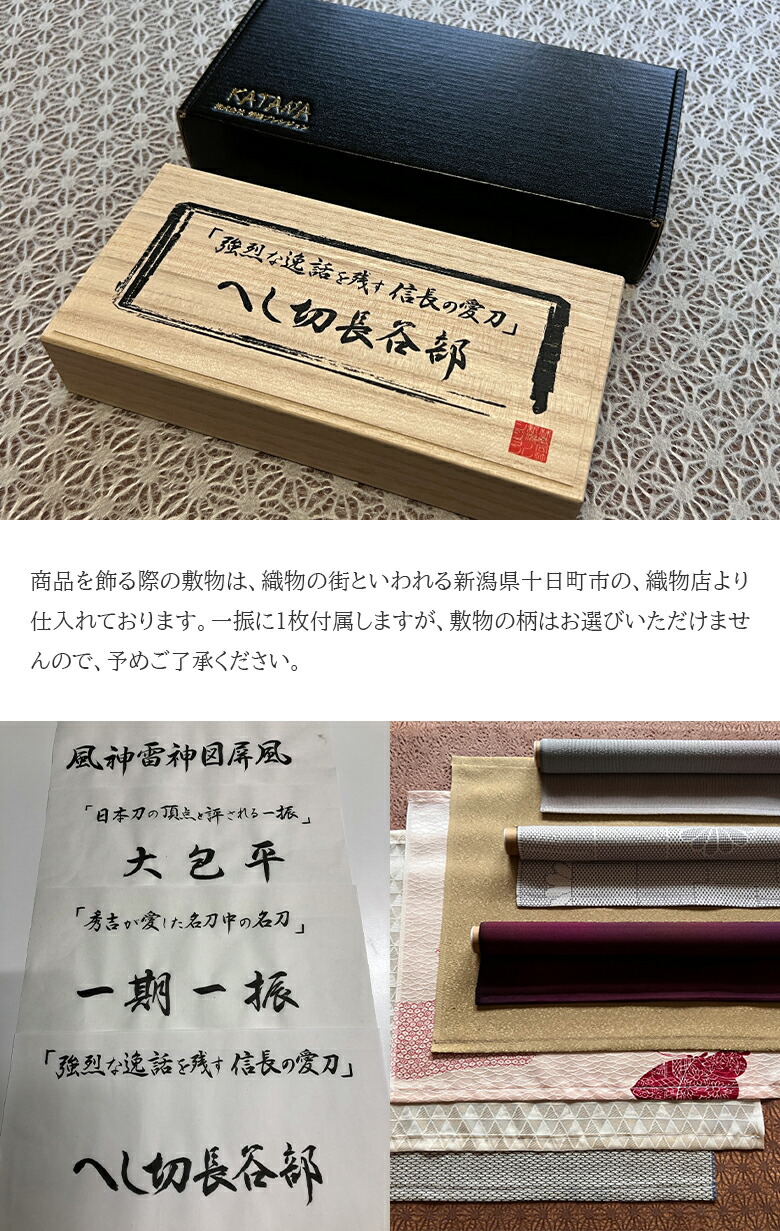 KATANA
「強烈な逸話を残す 信長の愛刀」
へし切長谷部
商品を飾る際の敷物は、織物の街といわれる新潟県十日町市の、織物店より
仕入れております。一振に1枚付属しますが、敷物の柄はお選びいただけませ
んので、予めご了承ください。
風神雷神図屏風
「日本刀の頂点と評される一振」
大包平
「秀吉が愛した名刀中の名刀」
一期一振
「強烈な逸話を残す 信長の愛刀」
へし切長谷部